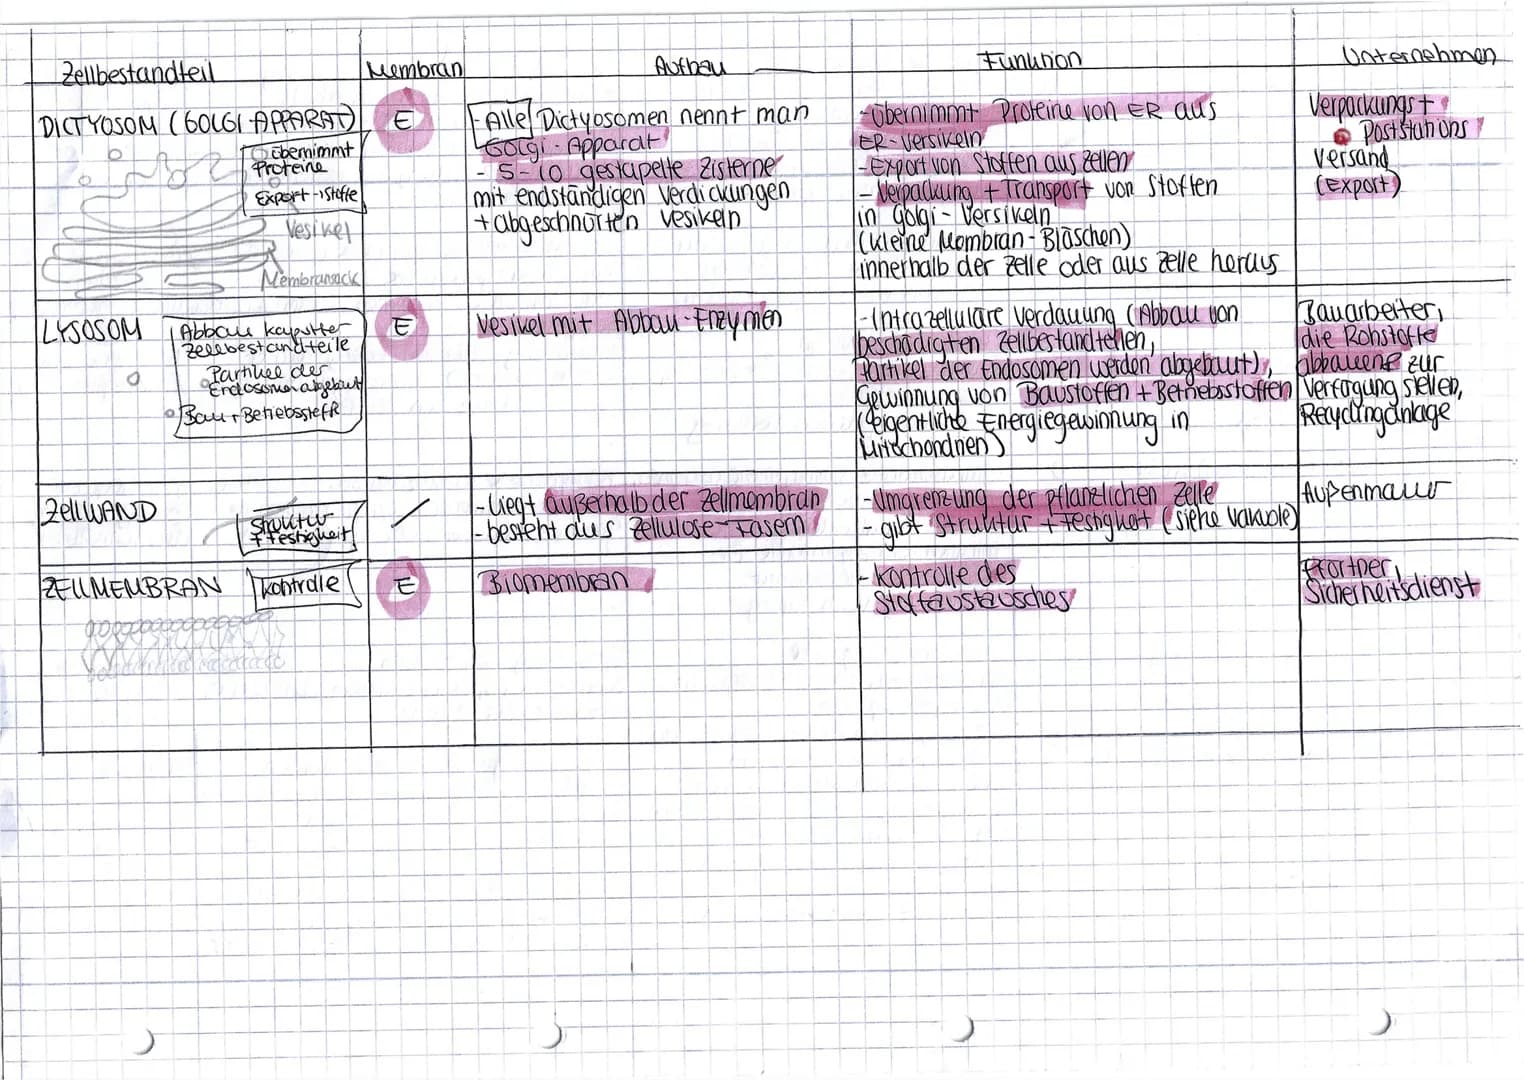 Zellbestandteil
Membran
Aufbau
Funktion
Unternehmen
DICTYOSOM (GOLGI APPARAT)
übernimmt
Proteine
Export → Stoffe
Vesikel
Membransack
E
- Alle Dictyosomen nennt man
Golgi-Apparat
- 5-10 gestapelte Zisterne
mit endständigen Verdickungen
+ abgeschnürten Vesikeln
- übernimmt Proteine von ER aus
ER-Versikeln
- Export von Stoffen aus Zellen
- Verpackung + Transport von Stoffen
in Golgi-Versikeln
(kleine Membran-Bläschen)
innerhalb der Zelle oder aus Zelle heraus
Verpackungs +
Poststations
Versand
(Export)
LYSOSOM
Abbau kaputter
Zellbestandteile
Partikel der
Endosomen abgebaut
Bau + Betriebsstoffe
E
Vesikel mit Abbau-Enzymen
- Intrazelluläre Verdauung (Abbau von
beschädigten Zellbestandteilen,
Partikel der Endosomen werden abgebaut),
Gewinnung von Baustoffen + Betriebsstoffen
(eigentliche Energiegewinnung in
Mitochondrien)
Bauarbeiter,
die Rohstoffe
abbauen zur
Verfügung stellen,
Recyclinganlage
ZELLWAND
Struktur
+ Festigkeit
- liegt außerhalb der Zellmembran
- besteht aus Zellulose-Fasern
- Umgrenzung der pflanzlichen Zelle
- gibt Struktur + Festigkeit (siehe Vakuole)
Außenmauer
ZELLMEMBRAN
Kontrolle
E
Biomembran
- Kontrolle des
Stoffaustausches
Pförtner,
Sicherheitsdienst